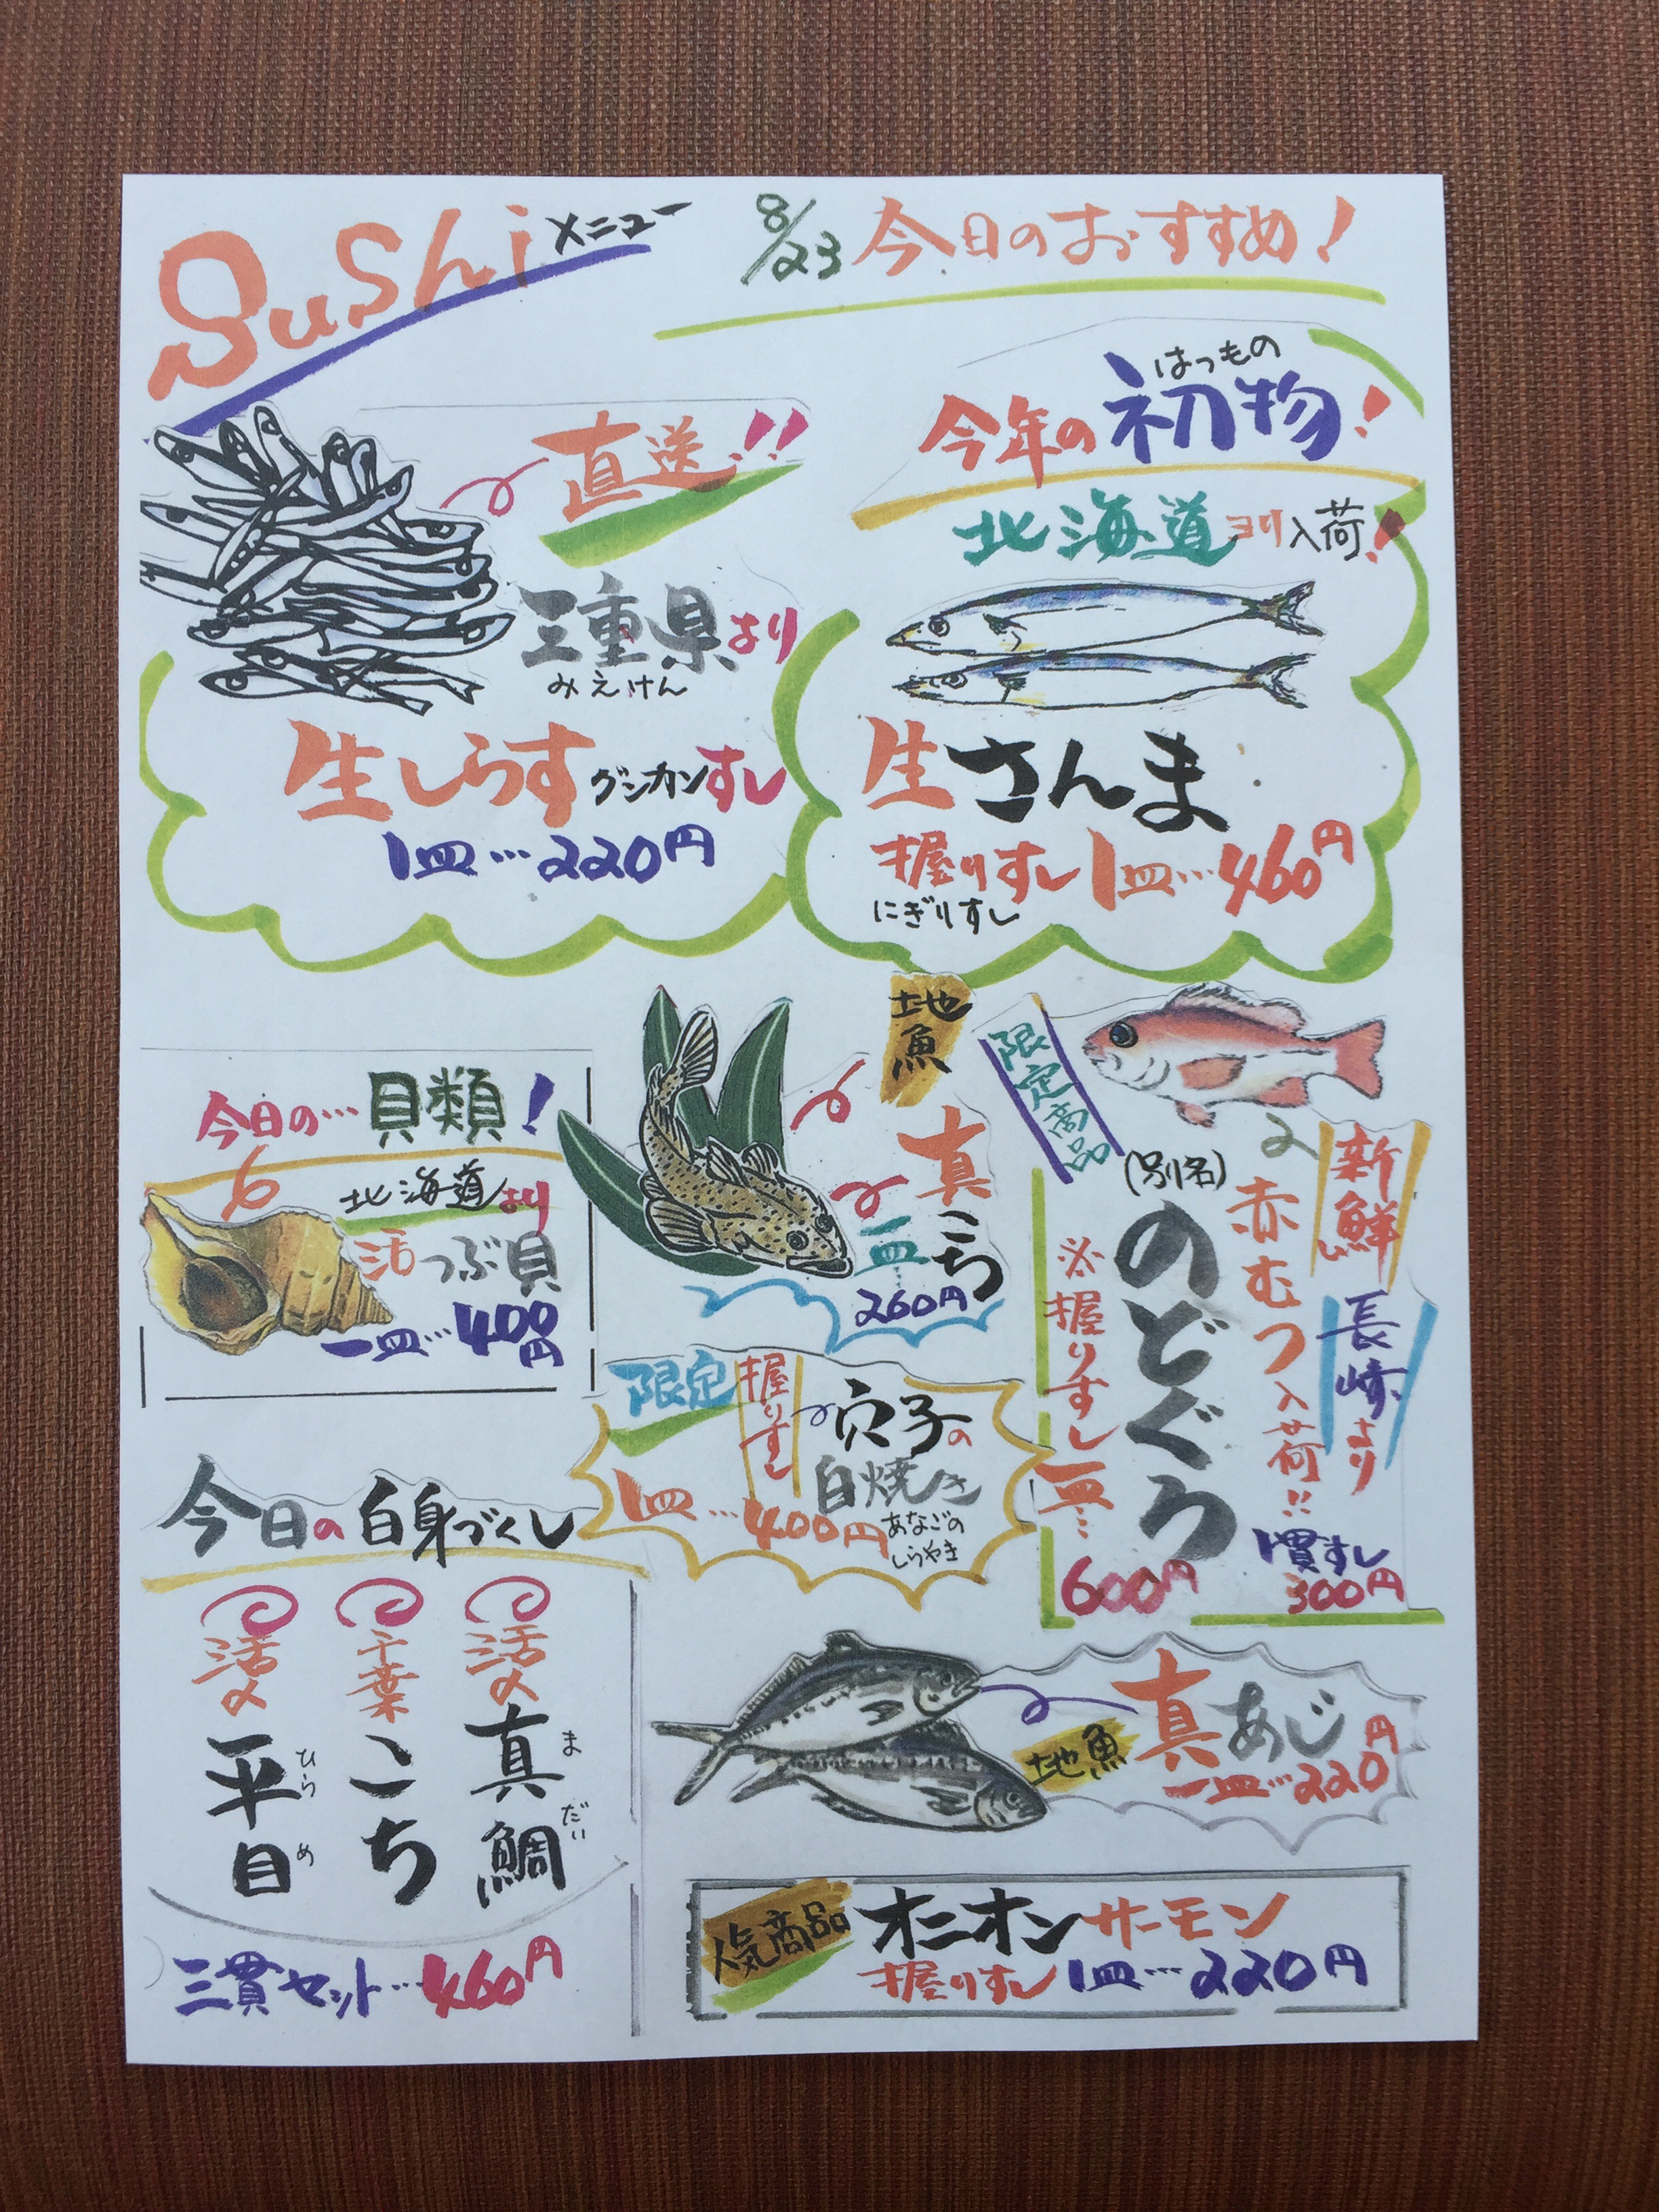 Sushi メニュー
8/23 今日のおすすめ!
直送!!
三重県より
みえけん
生しらす グンカンすし
1皿…220円
はつもの
今年の初物!
北海道ヨリ入荷!
生さんま
握りすし 1皿…460円
にぎりすし
今日の…貝類!
北海道より
活つぶ貝
一皿…400円
地魚
真こち
一皿…
260円
限定商品
新鮮
長崎より
赤むつ入荷!!
(別名)
のどぐろ
※握りすし一皿…
600円
1貫すし
300円
限定
握りすし
穴子の
白焼き
あなごの
しらやき
1皿…400円
今日の白身づくし
活〆真鯛
まだい
千葉こち
活〆平目
ひらめ
三貫セット…460円
地魚
真あじ
一皿…220円
人気商品
オニオンサーモン
握りすし 1皿…220円